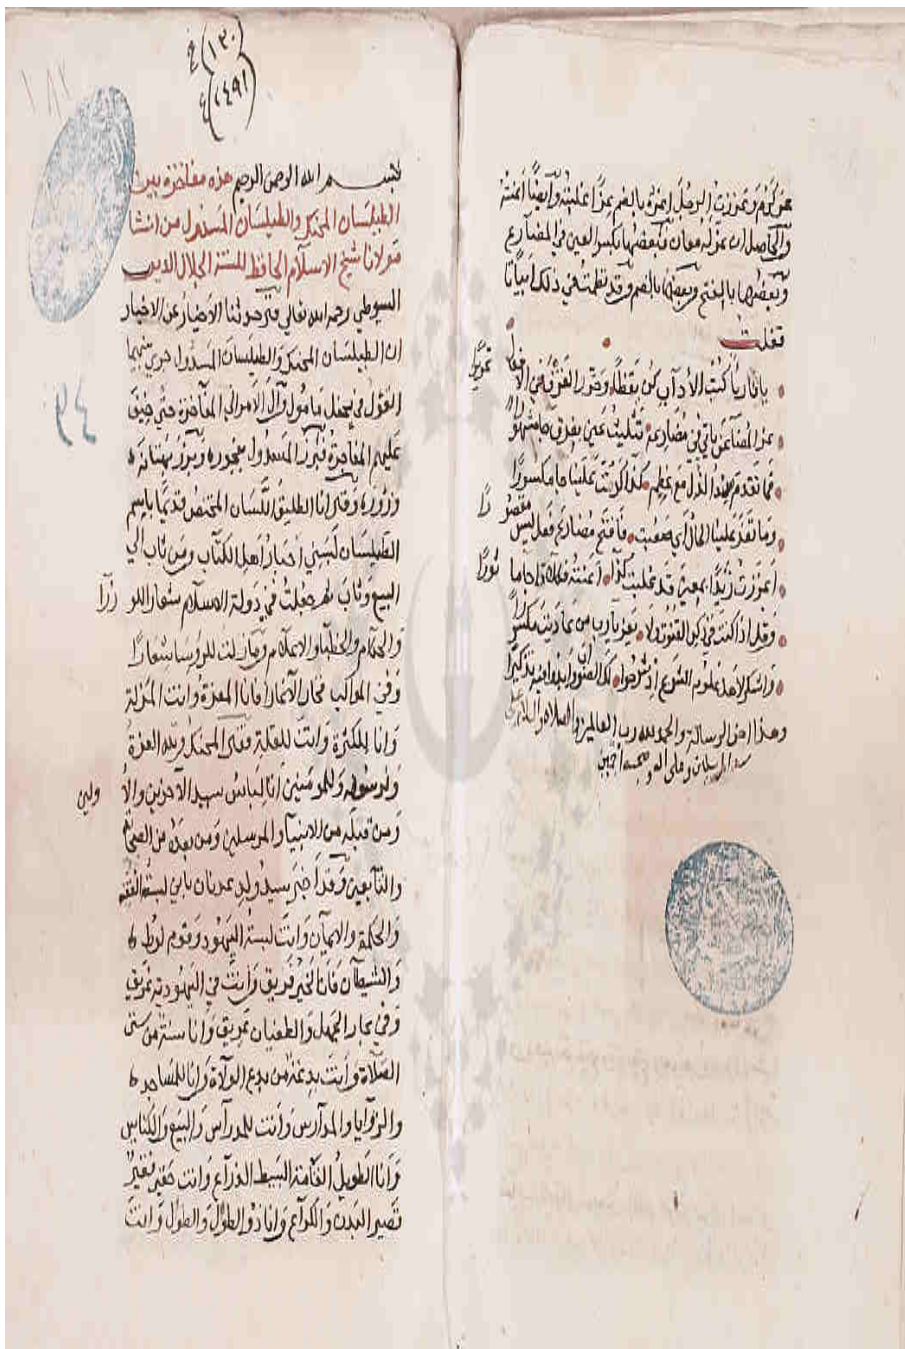 عز كرم وعززت الرجل اعزه بالضم عزا غلبته وايضا اعنته
والحاصل ان عز له معان فبعضها بكسر العين في المضارع
وبعضها بالفتح وبعضها بالضم وقد نظمت في ذلك ابياتا
فقلت
يا قاريا كتب الاداب كن يقظا وحرر الفرق في الافعال تحريرا
عز المضاعف ياتي في مضارعه تثليث عين بفرق جا مشهورا
فما كقل وضد الذل مع عظم كذا كرمت علينا جا مكسورا
وما كعز علينا الحال اي صعبت فافتح مضارعه فعل ليس مقصورا
اعززت زيدا بمعنى قد غلبت كذا اعنته فكلاهما جا ماثورا
وقل اذا كنت في ذكر القنوت ولا يعز يا رب من عاديت مكسورا
واشكر لاهل علوم الشرع اذ شرحوا لك الصواب وابدوا فيه تذكيرا
وهذا اخر الرسالة والحمد لله رب العالمين والصلاة والسلام على
سيد المرسلين وعلى اله وصحبه اجمعين
١٣٠
١٤٩١
بسم الله الرحمن الرحيم هذه مفاخرة بين
الطيلسان المحنك والطيلسان المسدول من انشا
مولانا شيخ الاسلام الحافظ للسنة الجلال الدين
السيوطي رحمه الله تعالى قد حدثنا الاخيار عن الاخبار
ان الطيلسان المحنك والطيلسان المسدول جرى بينهما
القول في محفل ماهول وآل الامر الى المفاخرة حتى ضيق
عليهم المفاجرة فبرز المسدول بفجوره وبزور بهتانه
وزوره وقال انا الطليق اللسان المختص قديما باسم
الطيلسان لبسني احبار اهل الكتاب ومن تاب الي
البيع وثاب ثم جعلت في دولة الاسلام شعار الوزرا
والحكام والخطبا والاعلام وما زلت للروسا شعارا
وفي المواكب فخارا لاتمارا فانا المعزة وانت المذلة
وانا للكثرة وانت للقلة فقال المحنك ولله العزة
ولرسوله وللمومنين انا لباس سيد الآخرين والاولين
ومن قبله من الانبيا والمرسلين ومن بعده من الصحابة
والتابعين وقد اخبر سيد ولد عدنان باني لبسة الفقه
والحكمة والايمان وانت لبسة اليهود وقوم لوط
والشيطان فانا لخير فريق وانت في اليهودية عريق
وفي بحار الجهل والطغيان غريق وانا سنة من سنن
الصلاة وانت بدعة من بدع الولاة وانا للمساجد
والزوايا والمدارس وانت للمدراس والبيع والكنايس
وانا الطويل القامة البسيط الذراع وانت حقير فقير
قصير البدن والكراع وانا ذو الطول والطول وانت